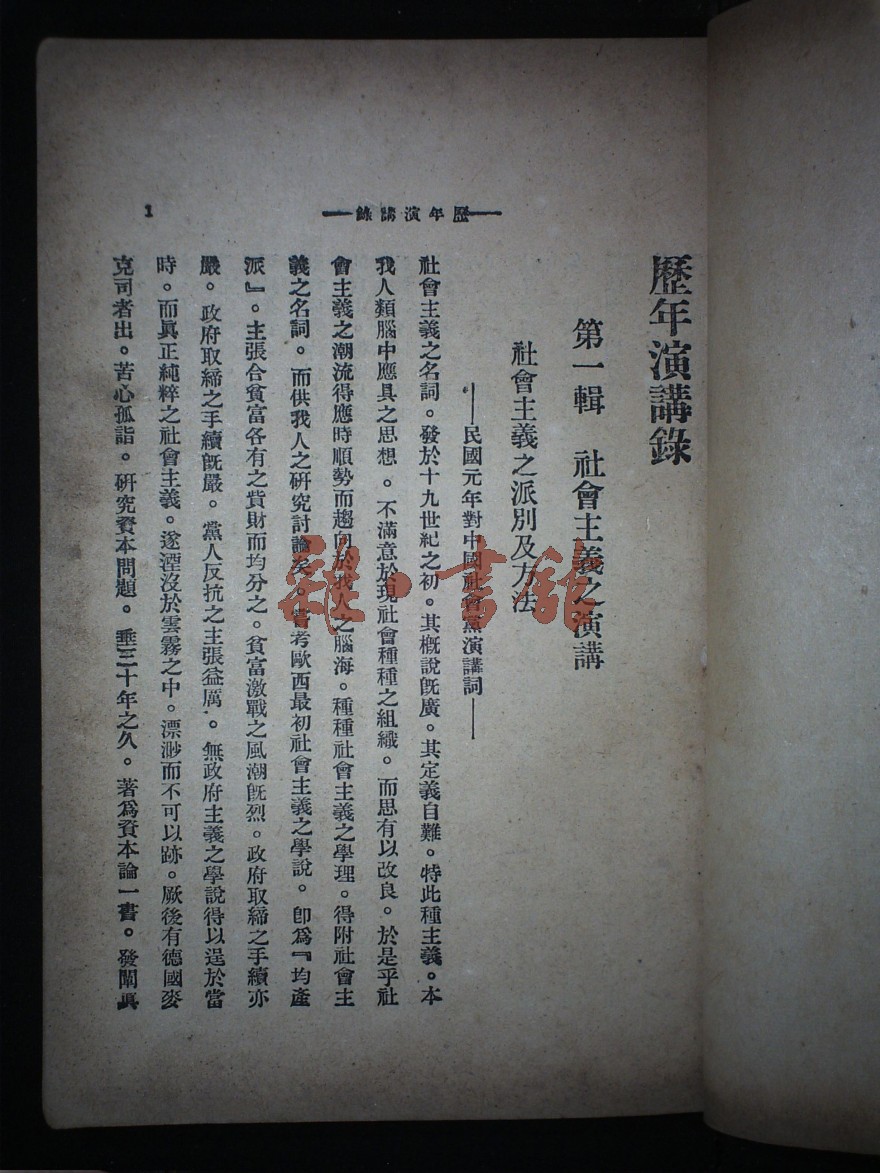 歷年演講錄
第一輯　社會主義之演講
社會主義之派別及方法
——民國元年對中國社會黨演講詞——
社會主義之名詞。發於十九世紀之初。其槪說旣廣。其定義自難。特此種主義。本
我人類腦中應具之思想。不滿意於現社會種種之組織。而思有以改良。於是乎社
會主義之潮流得應時順勢而趨向於我人之腦海。種種社會主義之學理。得附社會主
義之名詞。而供我人之研究討論矣。嘗考歐西最初社會主義之學說。卽爲『均產
派』。主張合貧富各有之貲財而均分之。貧富激戰之風潮旣烈。政府取締之手續亦
嚴。政府取締之手續旣嚴。黨人反抗之主張益厲。無政府主義之學說得以逞於當
時。而眞正純粹之社會主義。遂湮沒於雲霧之中。漂渺而不可以跡。厥後有德國麥
克司者出。苦心孤詣。研究資本問題。垂三十年之久。著爲資本論一書。發闡眞
——歷年演講錄——
1
雜·書館